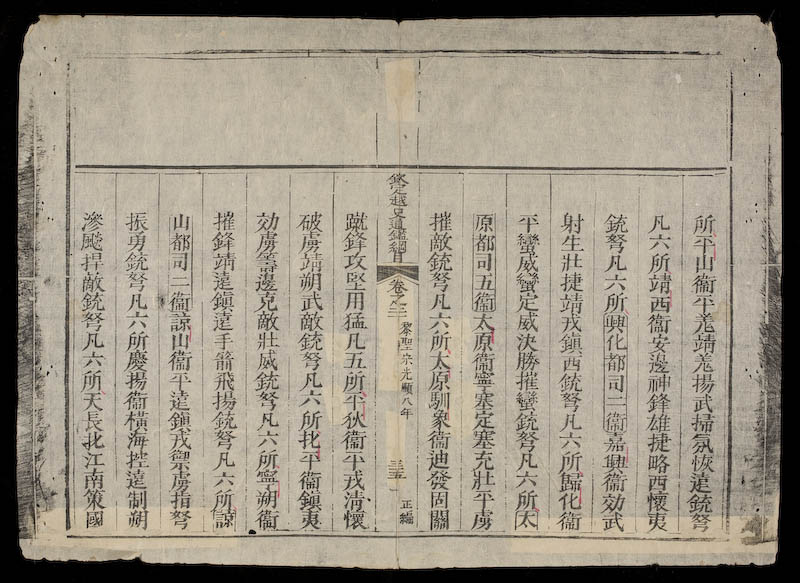 所平山衞平羌靖羌揚武掃氛恢遠銃弩
凡六所靖西衞安邊神鋒雄捷略西懷夷
銃弩凡六所興化都司二衞嘉興衞効武
射生壯捷靖戎鎮西銃弩凡六所歸化衞
平蠻威蠻定威決勝摧蠻銃弩凡六所太
原都司五衞太原衞寧塞定塞充壯平虜
摧敵銃弩凡六所太原馴象衞迪發固關
欽定越史通鑑綱目
卷之二
黎聖宗光順八年
三五
正編
蹴鋒攻堅用猛凡五所平狄衞平戎清懷
破虜靖朔武敵銃弩凡六所北平衞鎮夷
効虜籌邊克敵壯威銃弩凡六所寧朔衞
摧鋒靖遠鎮遠手箭飛揚銃弩凡六所諒
山都司二衞諒山衞平遠鎮戎禦虜指弩
振勇銃弩凡六所慶揚衞橫海控遠制朔
滲颷捍敵銃弩凡六所天長北江南策國